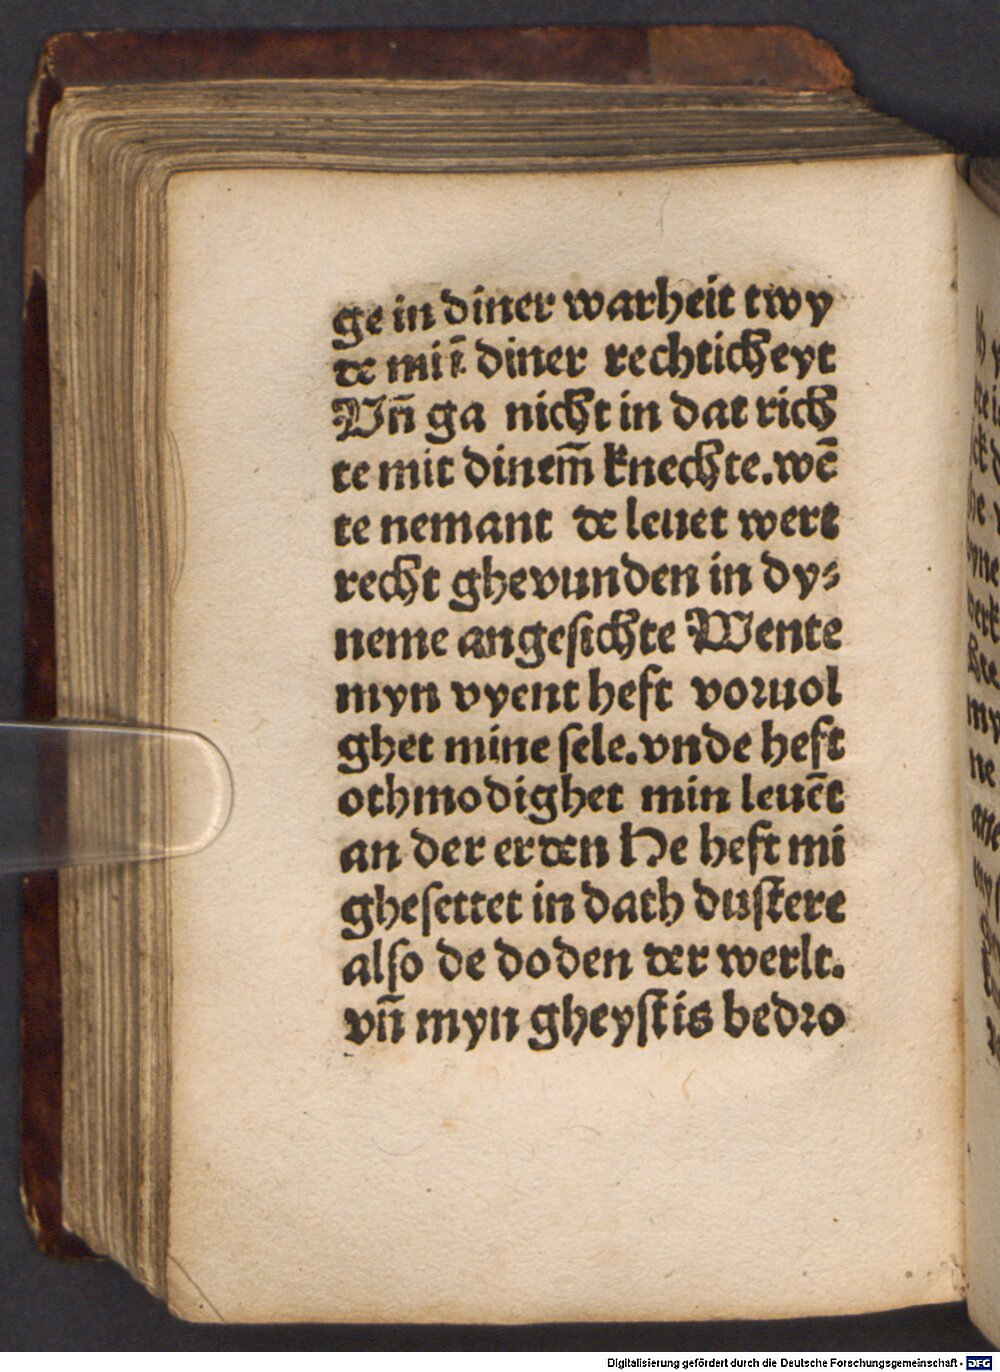 ge in diner warheit twy
de mi ī diner rechticheyt
Vn̄ ga nicht in dat rich
te mit dinem̄ knechte. wē
te nemant de leuet wert
recht ghevunden in dy⸗
neme angesichte Wente
myn vyent heft voruol
ghet mine sele. vnde heft
othmodighet min leuēt
an der erden He heft mi
ghesettet in dath dustere
also de doden der werlt.
vn̄ myn gheyst is bedro
Digitalisierung gefördert durch die Deutsche Forschungsgemeinschaft - DFG